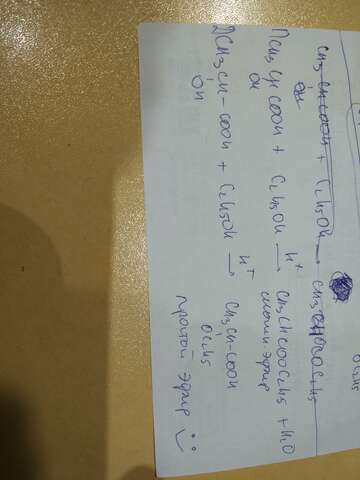 CH3 CH COOH + C2H5OH → CH3 CHCOOC2H5
OH
OC2H5
1) CH3 CH COOH + C2H5OH H+ → CH3 CH COOC2H5 + H2O
OH
сложный эфир
2) CH3 CH - COOH + C2H5OH H+ → CH3 CH-COOH
OH OC2H5
простой эфир